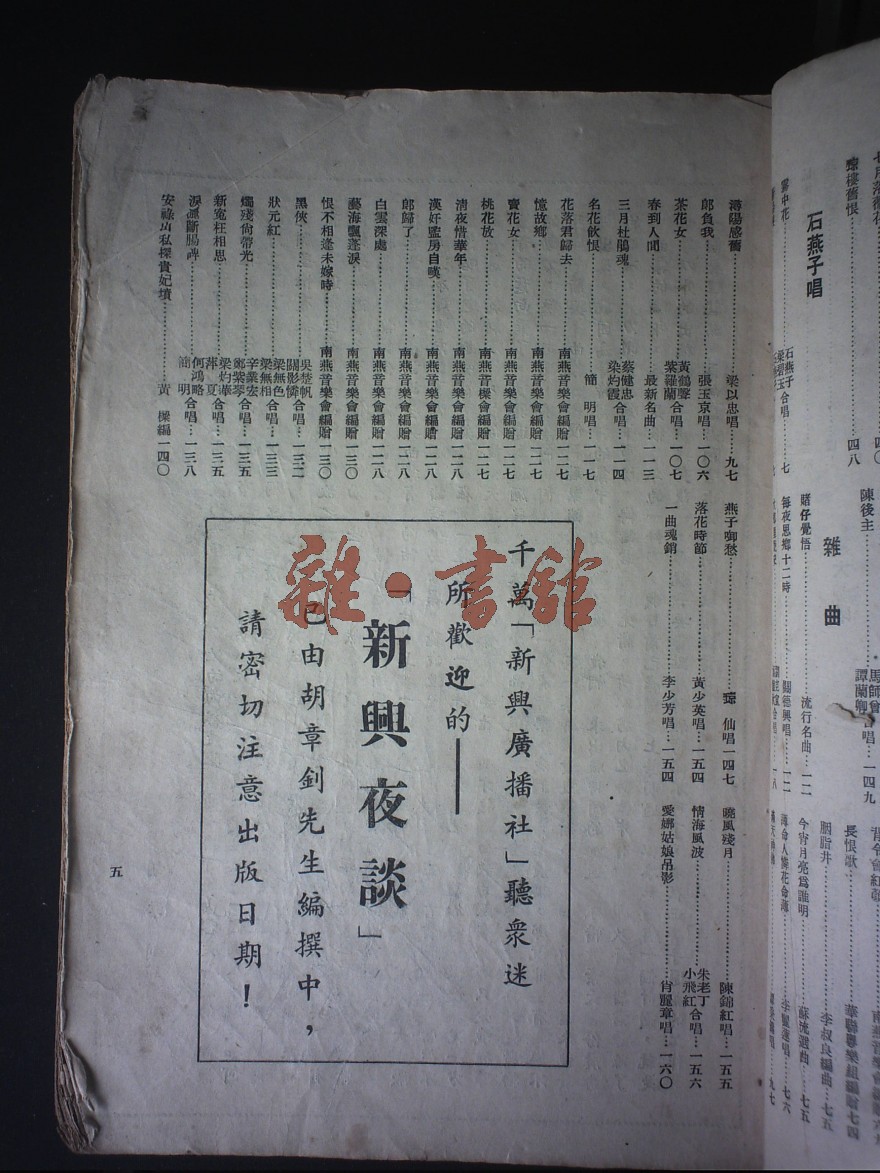 潯陽感舊……梁以忠唱……九七
郎負我……張玉京唱…一〇六
茶花女……黃鶴聲 紫羅蘭合唱…一〇七
春到人間……最新名曲…一一三
三月杜鵑魂……蔡健忠 梁灼霞合唱…一一四
名花飲恨……簡　明唱…一一七
花落君歸去……南燕音樂會編贈一二七
憶故鄉……南燕音樂會編贈一二七
賣花女……南燕音樂會編贈一二七
桃花放……南燕音樂會編贈一二七
清夜惜華年……南燕音樂會編贈一二八
漢奸監房自嘆……南燕音樂會編贈一二八
郎歸了……南燕音樂會編贈一二八
白雲深處……南燕音樂會編贈一二八
藝海飄蓬淚……南燕音樂會編贈一三〇
恨不相逢未嫁時……南燕音樂會編贈一三〇
黑俠……吳楚帆 關影憐合唱…一三二
狀元紅……梁無色 梁無相合唱…一三三
燭殘尚帶光……辛業宏 鄭紫琴合唱…一三五
新寃枉相思……梁灼華 萍　夏合唱…一三五
淚灑斷腸碑……何鴻略 簡　明合唱…一三八
安祿山私探貴妃墳……黃　樑編一四〇
燕子啣愁……瓊　仙唱一四七
落花時節……黃少英唱…一五四
一曲魂銷……李少芳唱…一五四
曉風殘月……陳錦紅唱…一五五
情海風波……朱老丁 小飛紅合唱…一五六
愛娜姑娘吊影……肖麗章唱…一六〇
千萬「新興廣播社」聽衆迷
所歡迎的——
「新興夜談」
已由胡章釗先生編撰中，
請密切注意出版日期！
五
雜·書館
瓊樓舊恨……四八
霧中花……石燕子 梁碧玉合唱…七
石燕子唱
陳後主……馬師曾 譚蘭卿合唱…一四九
賭仔覺悟……流行名曲…一二
每夜思鄉十二時……關德興唱…一二
雜　曲
長恨歌……華聯粵樂組編贈七四
胭脂井……李叔良編曲…七五
今宵月亮爲誰明……蘇流選曲…七五